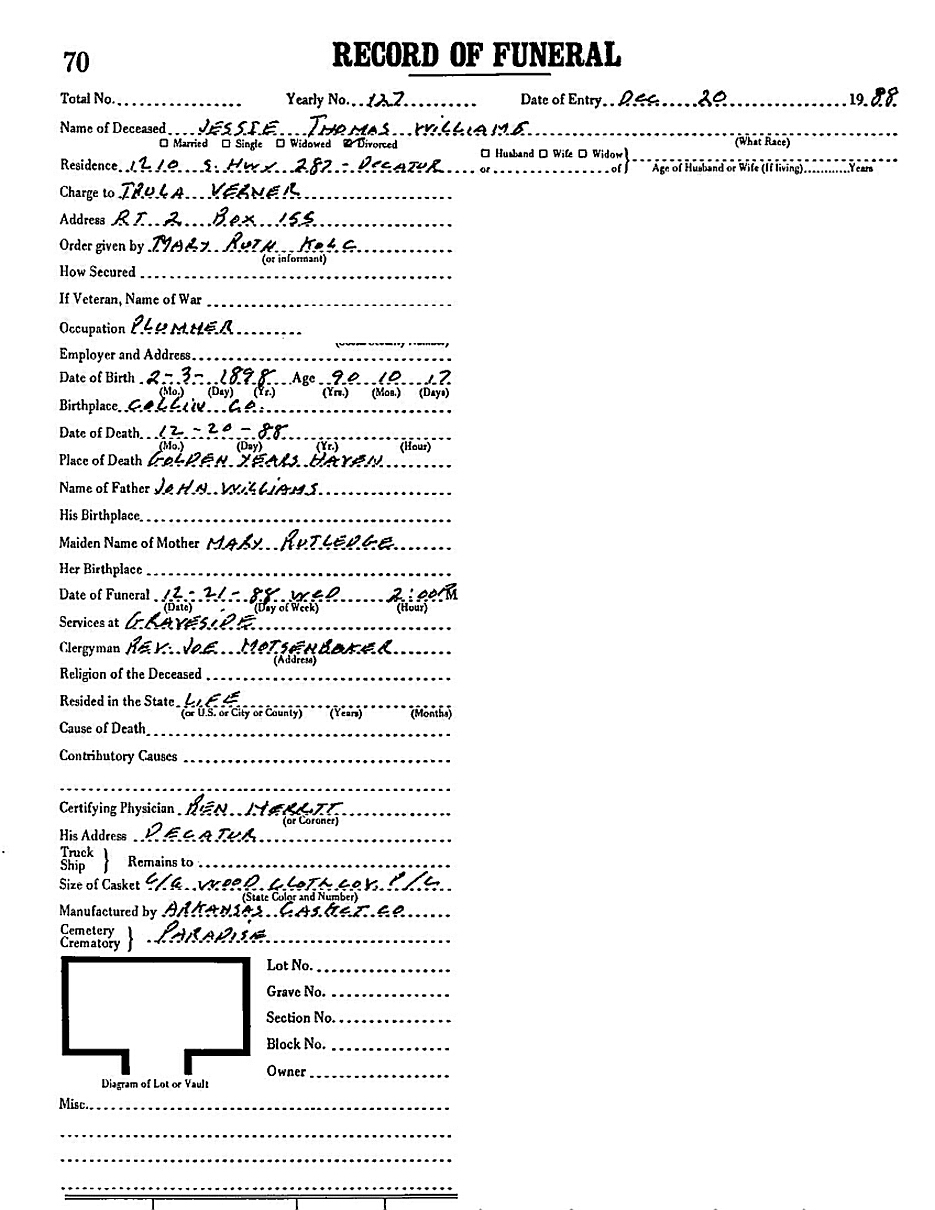 70
RECORD OF FUNERAL
Total No. Yearly No. 127 Date of Entry DEC 20 1988
Name of Deceased JESSIE THOMAS WILLIAMS
☐ Married ☐ Single ☐ Widowed ☑ Divorced (What Race)
☐ Husband ☐ Wife ☐ Widow
Residence 1210 S. HWY 287 - DECATUR or of Age of Husband or Wife (If living) Years
Charge to TRULA VERNER
Address RT 2 BOX 155
Order given by MARY RUTH
(or informant)
How Secured
If Veteran, Name of War
Occupation PLUMMER
Employer and Address
Date of Birth 2-3-1898 Age 90 10 17
(Mo.) (Day) (Yr.) (Yrs.) (Mos.) (Days)
Birthplace COLLIN CO.
Date of Death 12-20-88
(Mo.) (Day) (Yr.) (Hour)
Place of Death GOLDEN YEARS HAVEN
Name of Father JOHN WILLIAMS
His Birthplace
Maiden Name of Mother MARY RUTLEDGE
Her Birthplace
Date of Funeral 12-21-88 WED 2:00 PM
(Date) (Day of Week) (Hour)
Services at GRAVESIDE
Clergyman REV. JOE MOTSENBOKER
(Address)
Religion of the Deceased
Resided in the State LIFE
(or U.S. or City or County) (Years) (Months)
Cause of Death
Contributory Causes
Certifying Physician BEN MERRITT
(or Coroner)
His Address DECATUR
Truck
Ship } Remains to
Size of Casket 6/6 WOOD CLOTH COV. P/G
(State Color and Number)
Manufactured by ARKANSAS CASKET CO
Cemetery
Crematory } PARADISE
Lot No.
Grave No.
Section No.
Block No.
Owner
Diagram of Lot or Vault
Misc.